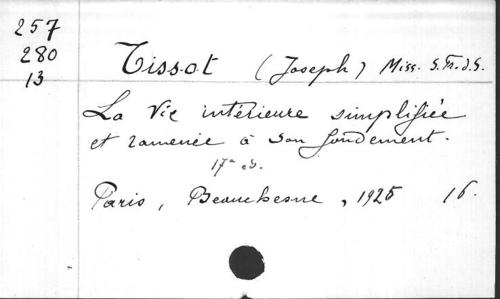 257
280
13
Tissot (Joseph) Miss. S. Fr. d. S.
La Vie intérieure simplifiée
et ramenée à son fondement.
17e ed.
Paris, Beauchesne, 1925 16.